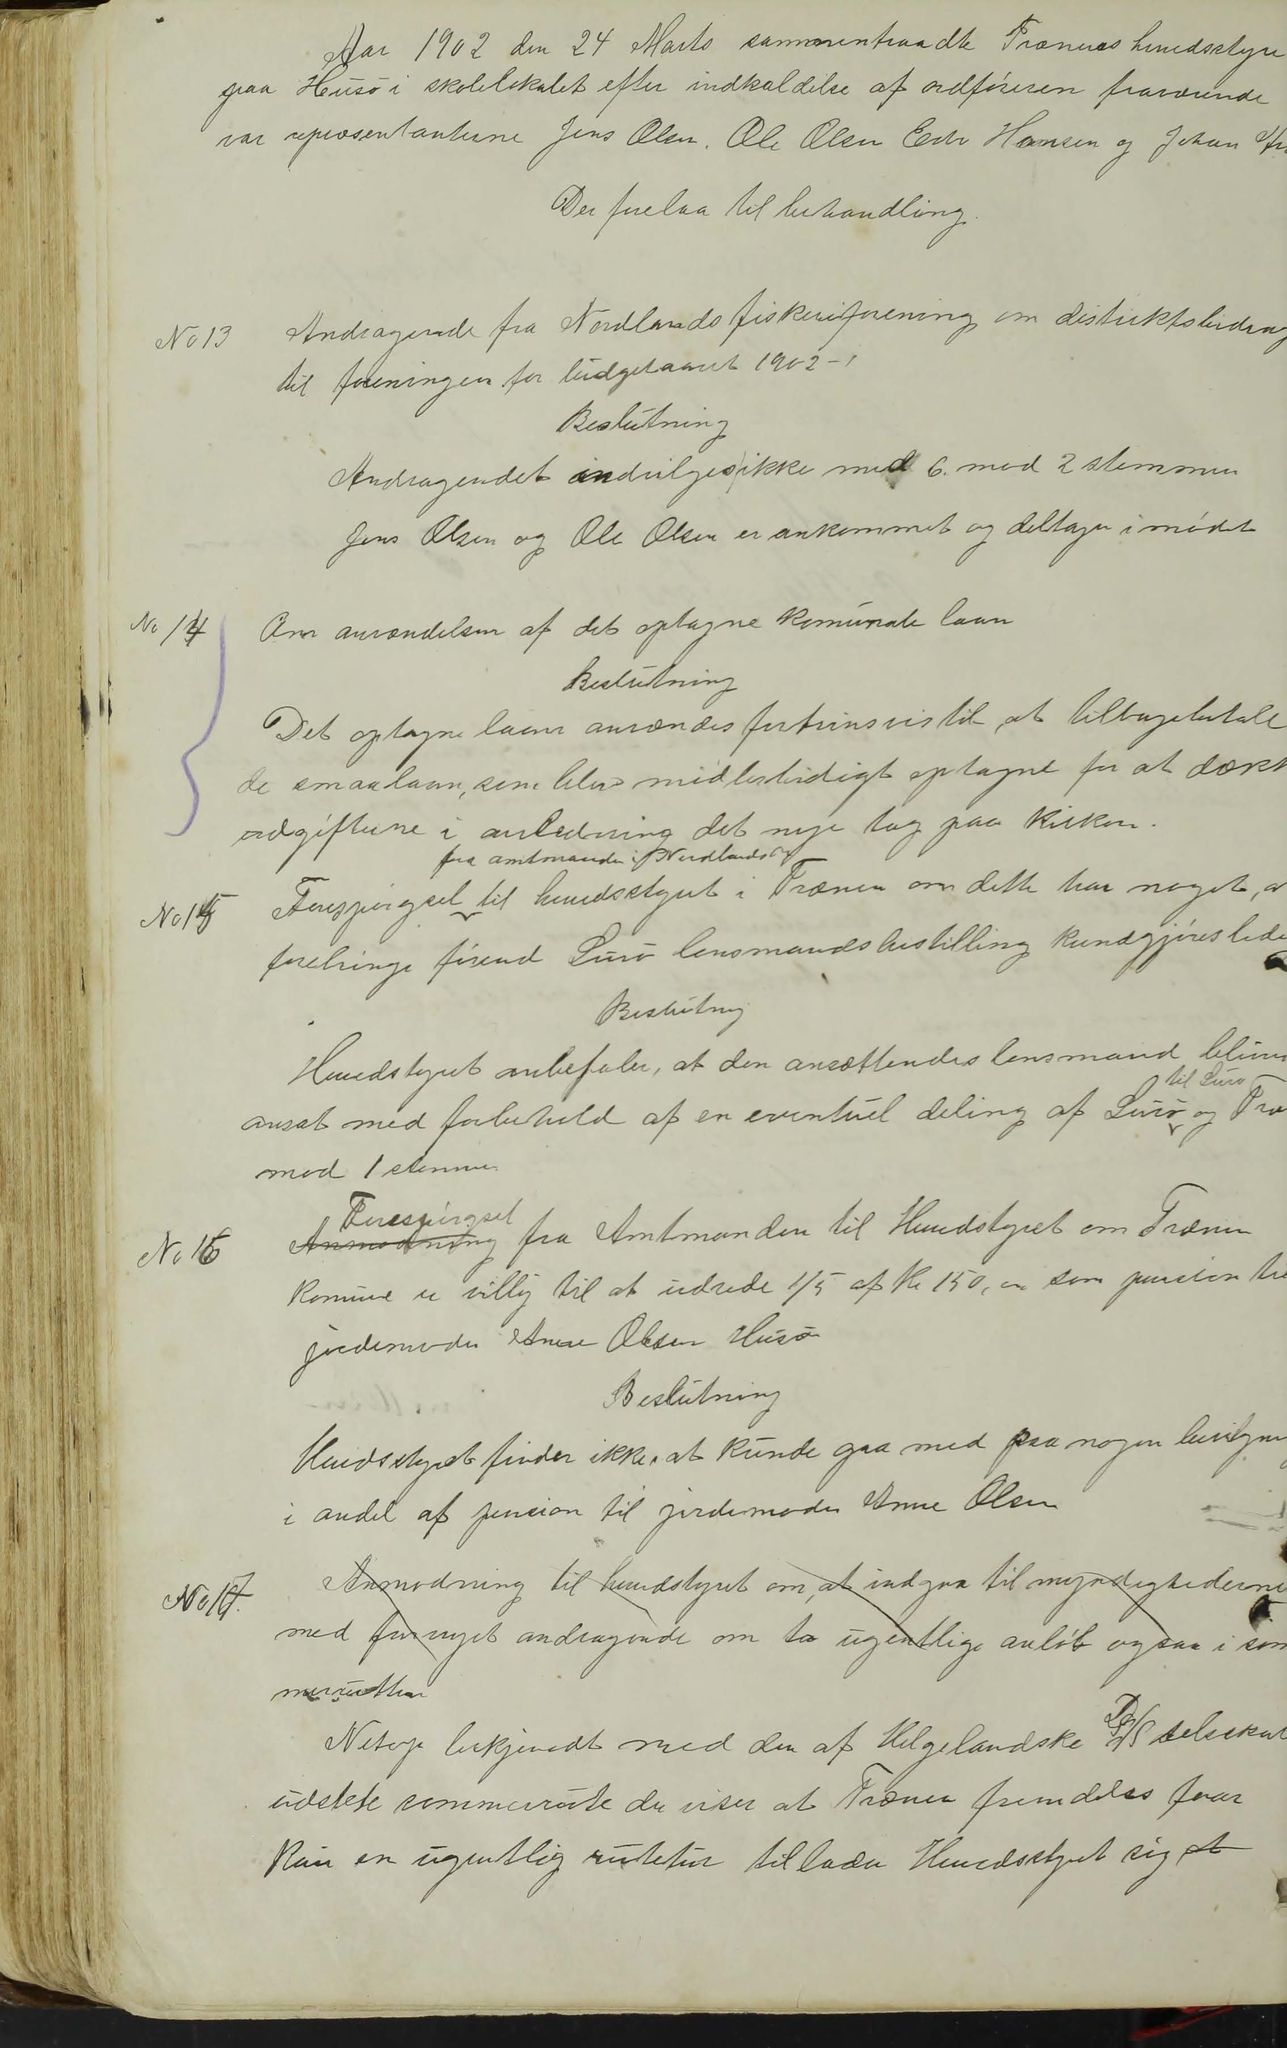 Aar 1902 den 24 Marts sammentraadte Trænens herredsstyre
paa Husø i skolelokalet efter indkaldelse af ordføreren fraværende
var repræsentanterne Jens Olsen. Ole Olsen Edv Hansen og Johan
Der forelaa til behandling.
No 13 Andragende fra Nordlands fiskeriforening om distriktsbidrag
til foreningen for budgetaaret 1902-
Beslutning
Andragendet indvilges ikke med 6. mod 2 stemmer
Jens Olsen og Ole Olsen er ankommet og deltager i mødet
No 14 Om anvendelsen af det optagne komunale laan
Beslutning
Det optagne laan anvendes fortrinsvis til at tilbagebetale
de smaalaan, som blev midlertidigt optagne for at dække
udgifterne i anledning det nye tag paa kirken.
fra amtmanden i Nordlands
No 15 Forespørgsel til herredsstyret i Trænen om dette har noget, at
forebringe førend Lurø lensmandsbestilling kundgjøres ledig
Beslutnig
Herredstyret anbefaler, at den ansættendes lensmand bliver
til Lurø
ansat med forbehold af en eventuel deling af Lurø og Træ
mod 1 stemme
Forespørgsel
No 16 Anmodning fra Amtmanden til Herredstyret om Trænen
komune er villig til at udrede 1/5 af Kr 150, som pension til
jordemoder Anne Olsen Husø
Beslutning
Herredsstyret finder ikke at kunde gaa med paa nogen bevilgning
i andel af pension til jordemoder Anne Olsen
No 17. Anmodning til herredstyret om, at indgaa til myndighederne
med fornyet andragende om to ugentlige anløb ogsaa i som
merruten
Netop bekjendt med den af Helgelandske D/S selskab
udstete sommerroute der viser at Trænen fremdeles faar
kun en ugentlig rutetur tillader Herredsstyret sig at